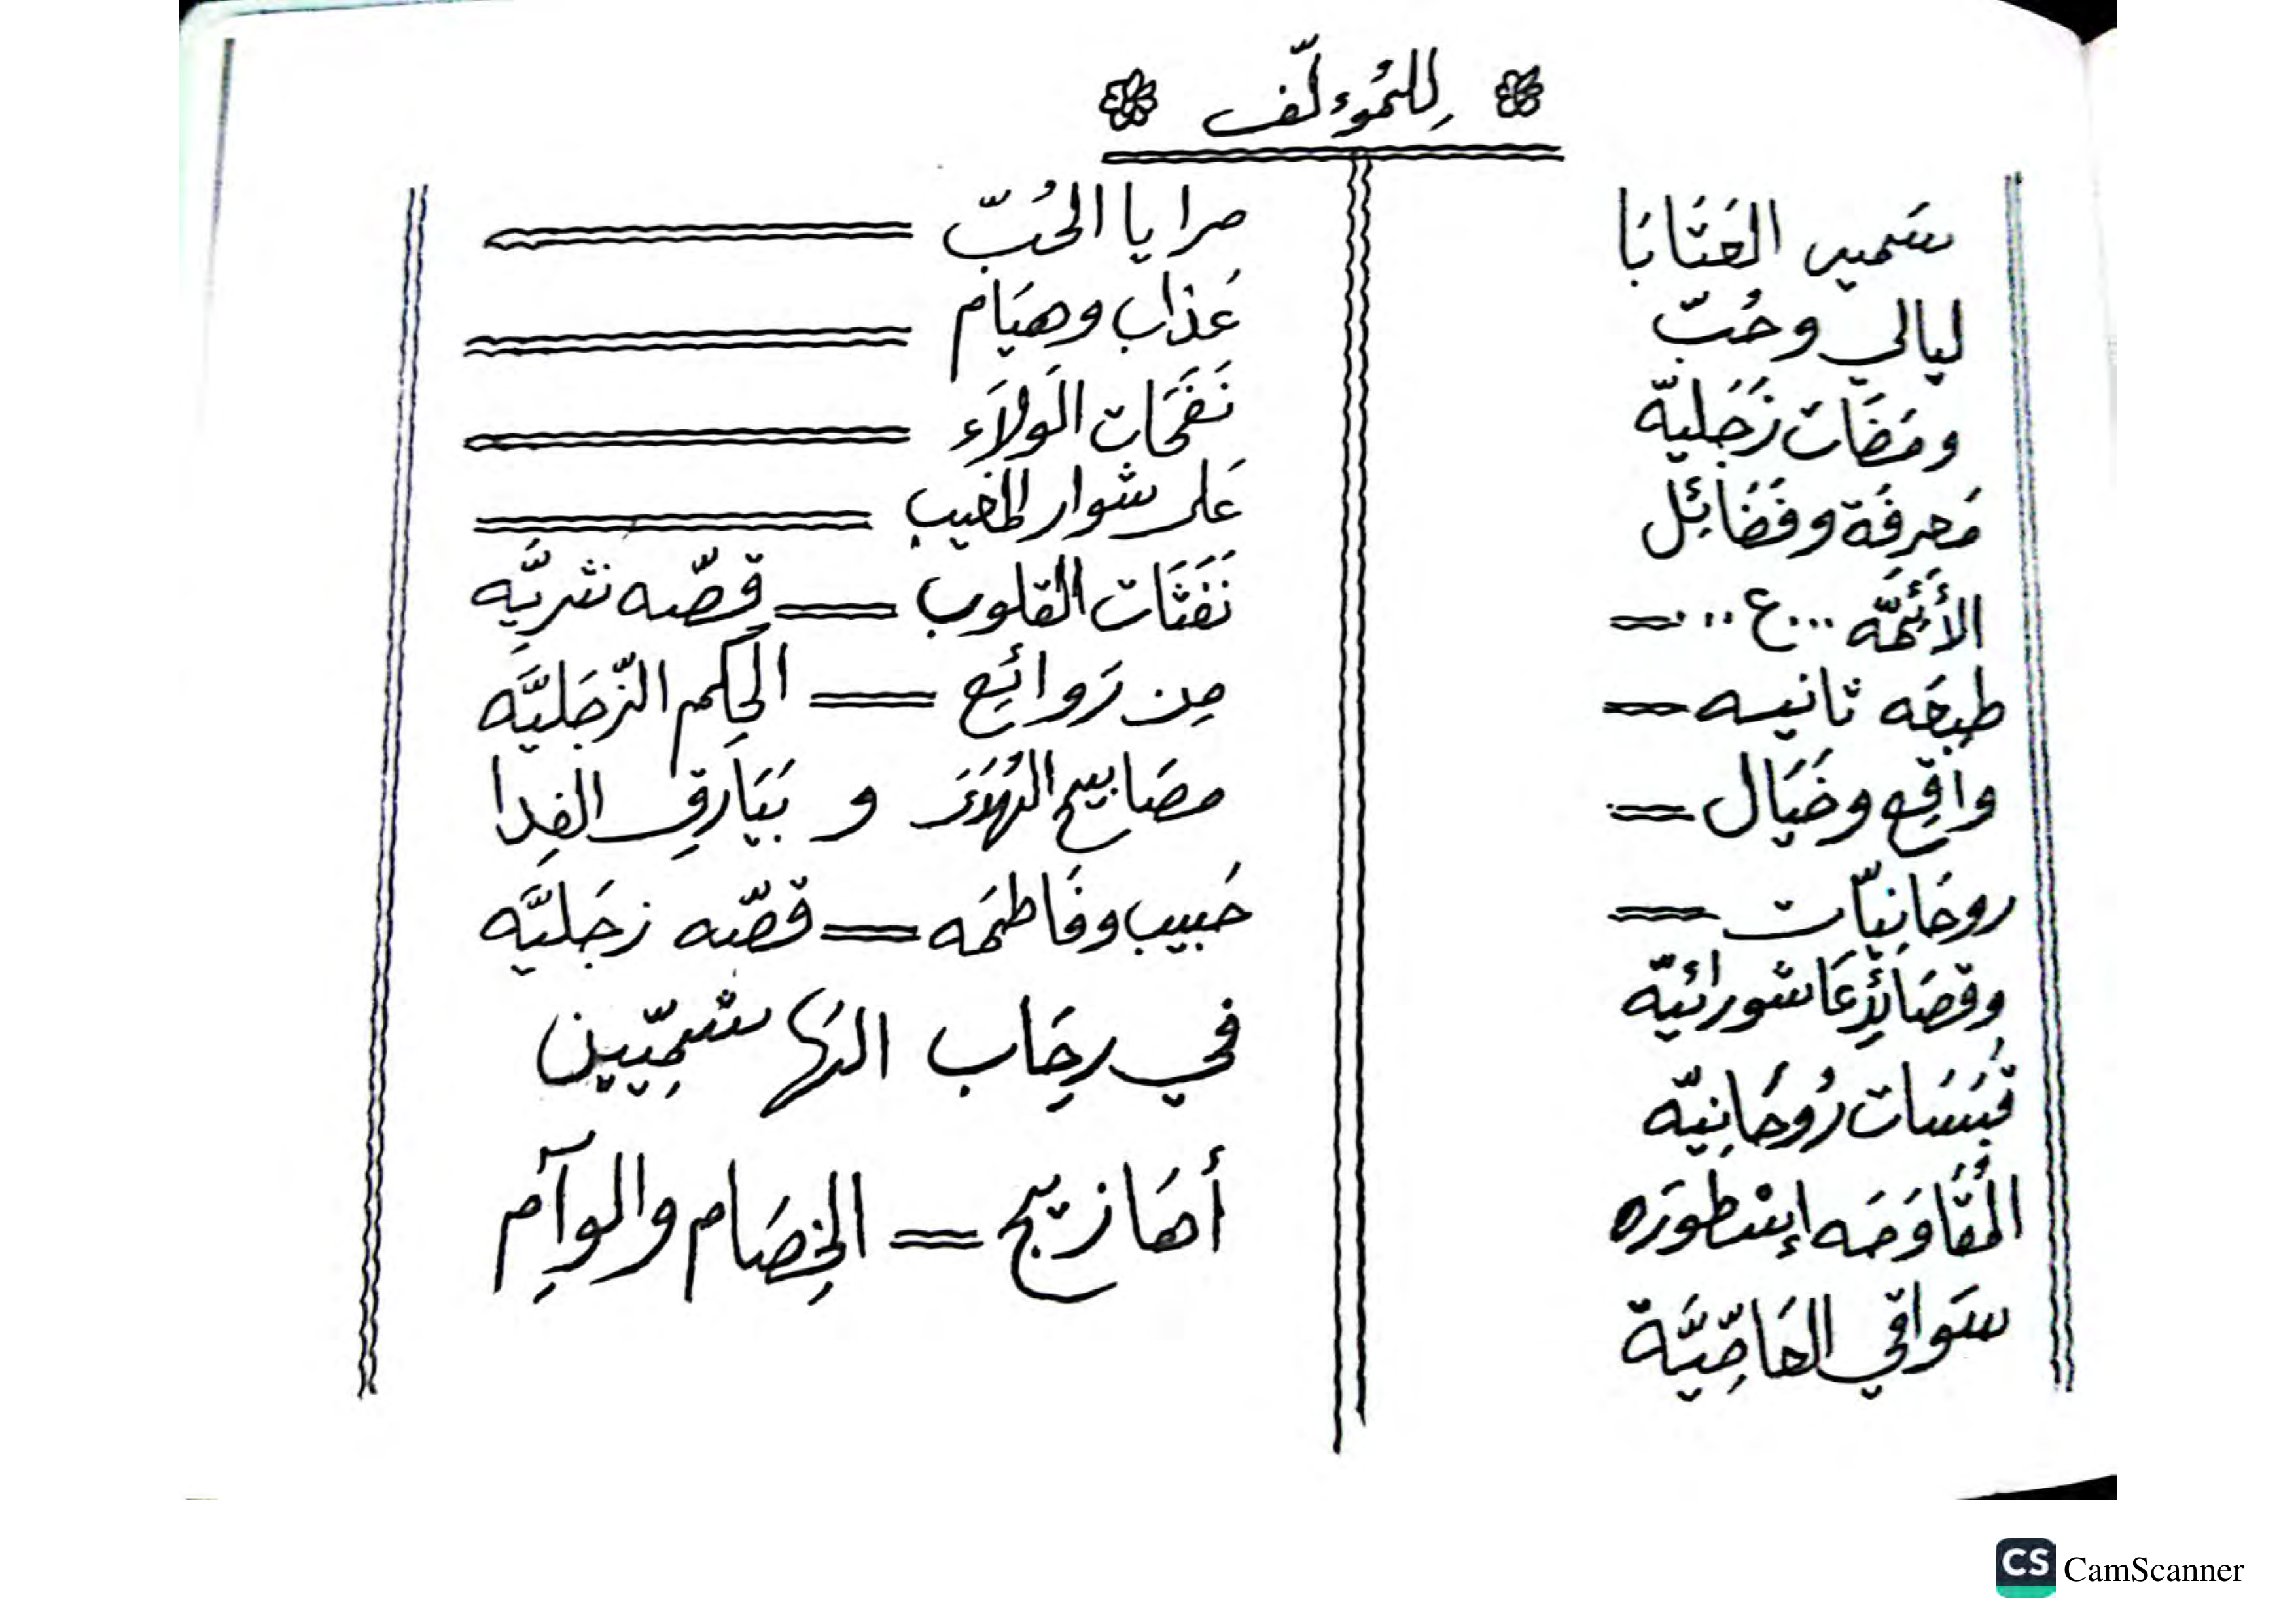 لِلمُوءلّف
سَمير العَتَابَا
ليالي وحُبّ
ومَضَات زَجَليّه
مَعرِفَة وفَضَائِل
الأَئِمَّه ...ع...
طبعَه ثانيه
واقِع وخَيَال
روحَانيّات
وقصَائِد عَاشورائيّه
قَبَسَات رُوحَانِيّه
المُقَاوَمَه إسْطورَه
سَواقي العَاصِّيَّة
مرايا الحُبّ
عَذاب وهيَام
نَفَحَات الَولاَء
عَلى شوار المغيب
نَفَثَات القلوب قِصّه نثريَّه
مِن رَوائِع الحِكم الزّجَليَّه
مصَابيح الهُدَى و بَيَارِق الفِدا
حَبيب وفَاطمَه قصّه زجَليَّه
في رحَِاب الهَاشمِيّين
أهَازيج الخِصَام والوِآم
CamScanner